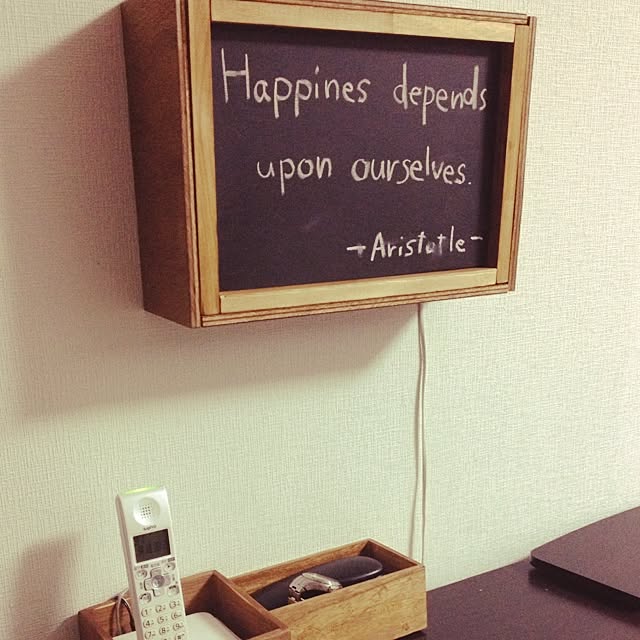 Happines depends
upon ourselves.
-Aristotle-